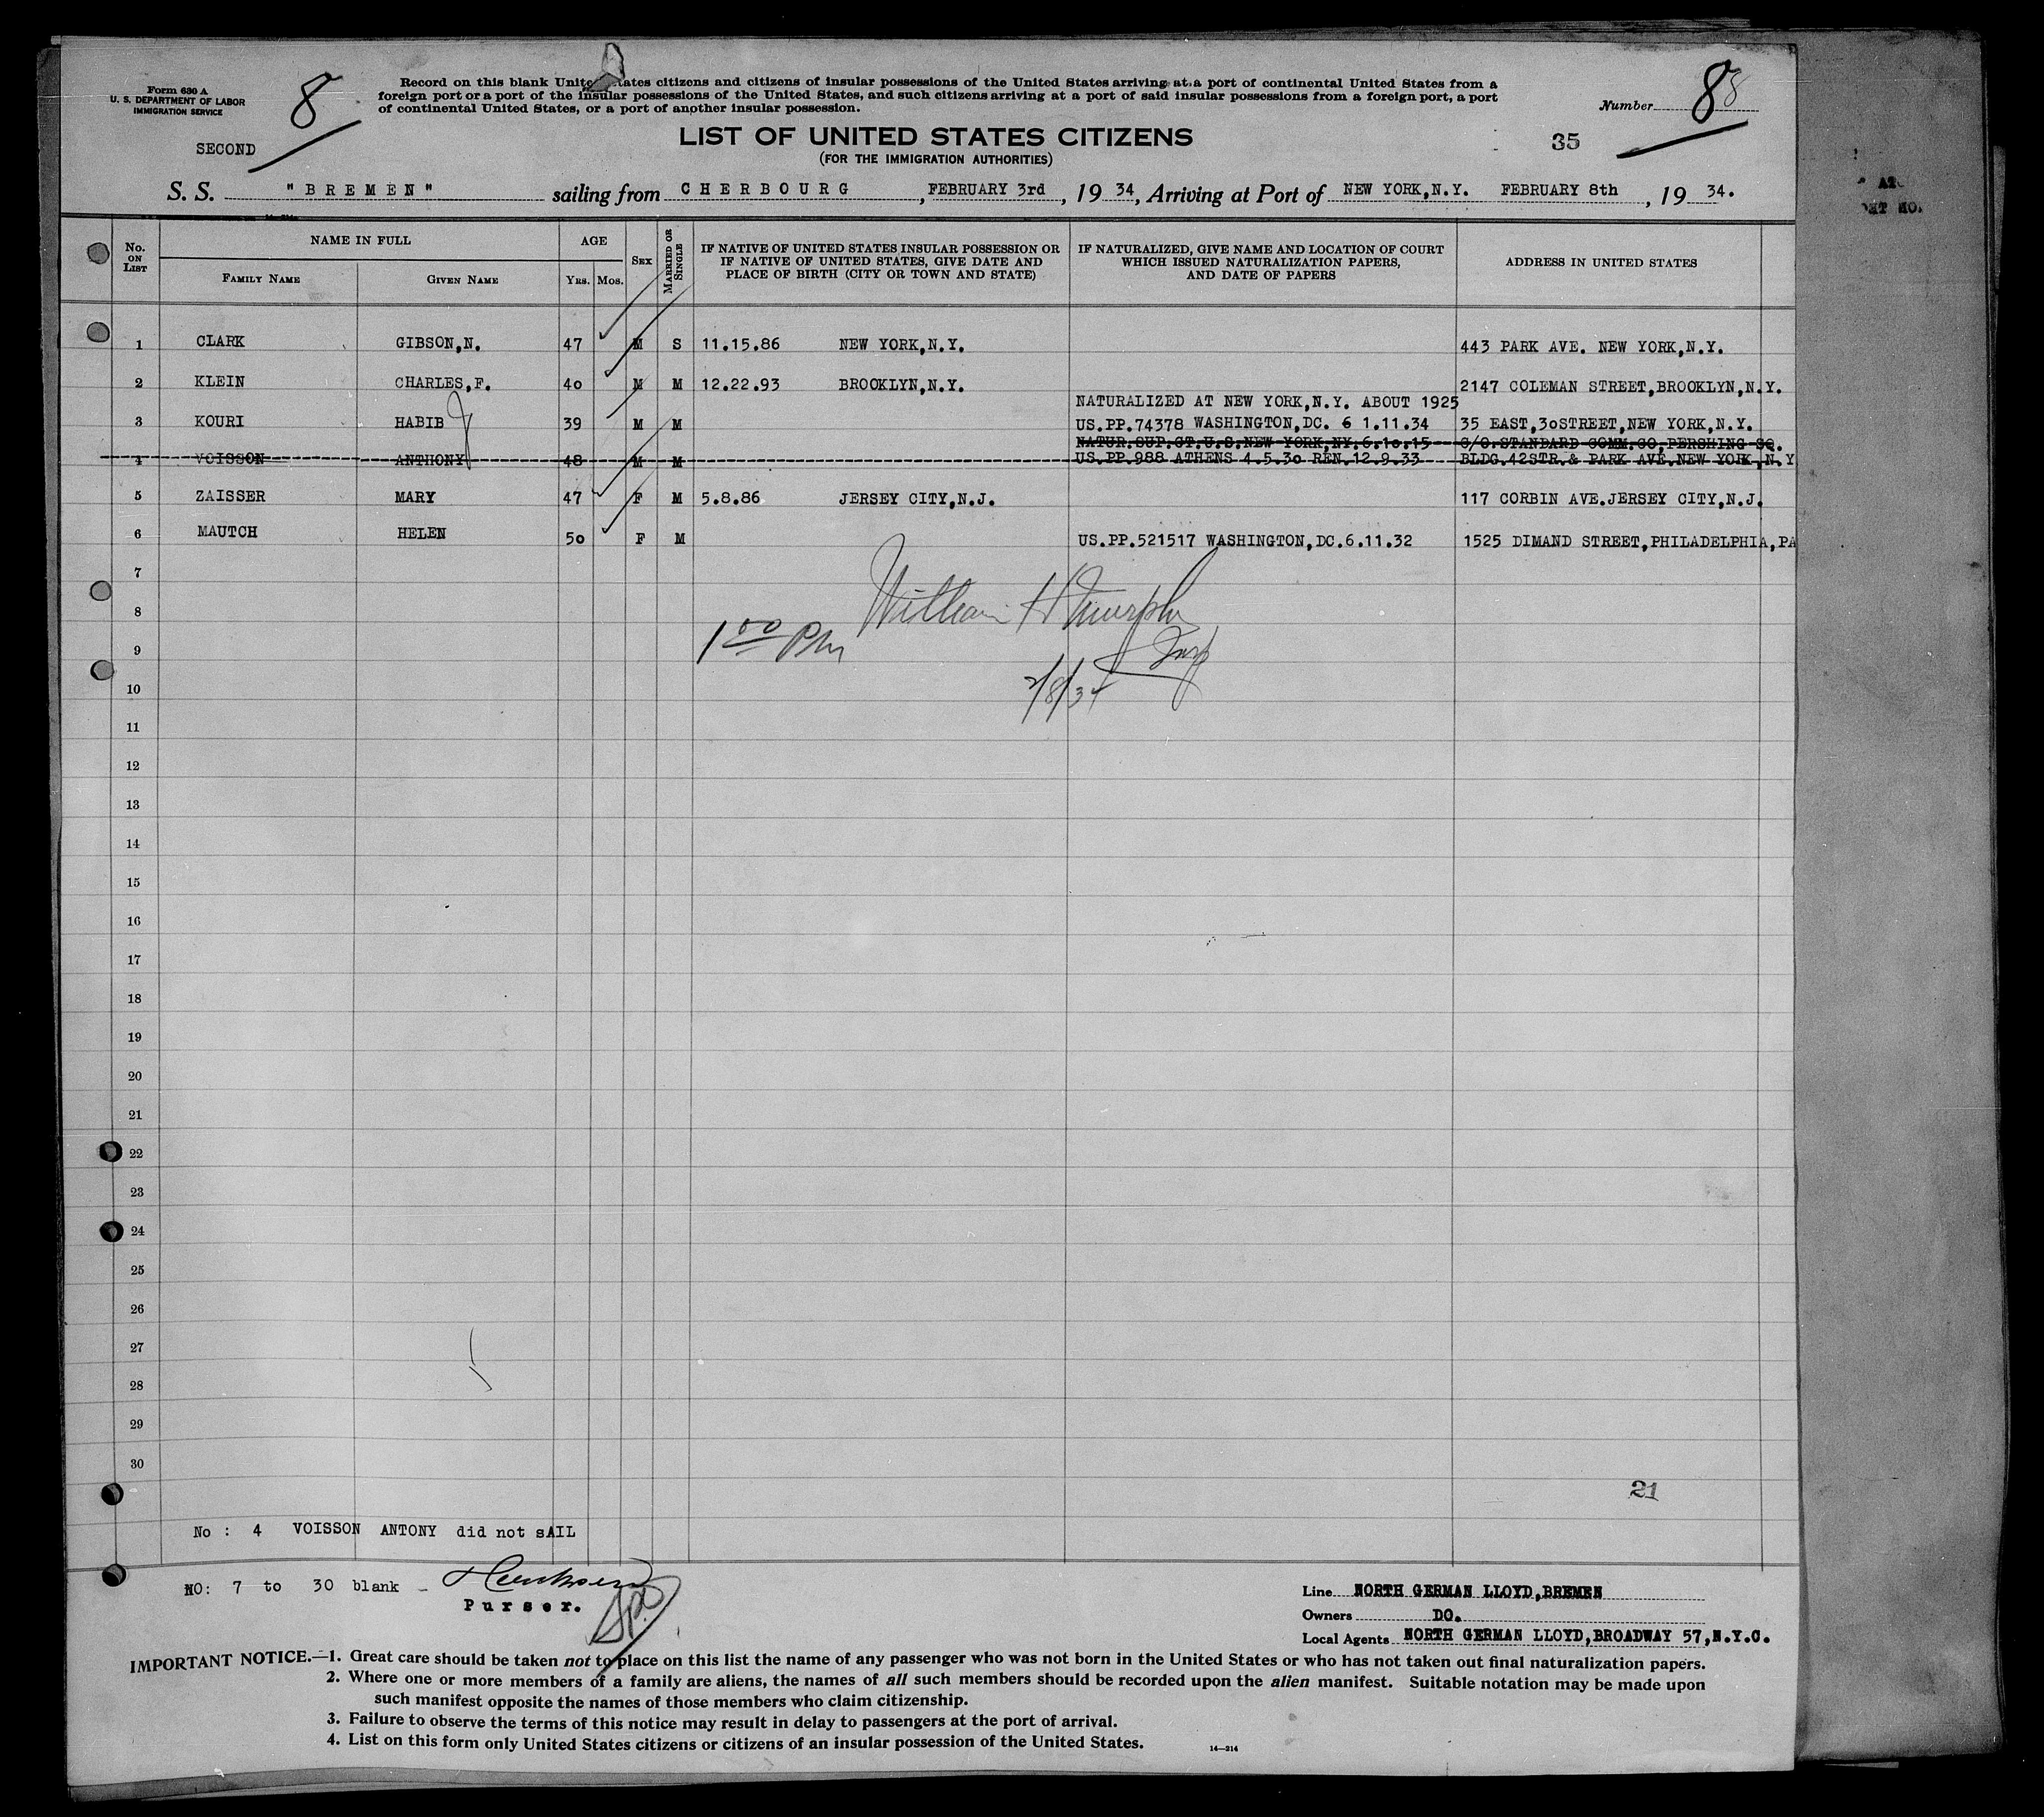 Form 630 A
U. S. DEPARTMENT OF LABOR
IMMIGRATION SERVICE
8
Record on this blank United States citizens and citizens of insular possessions of the United States arriving at a port of continental United States from a
foreign port or a port of the insular possessions of the United States, and such citizens arriving at a port of said insular possessions from a foreign port, a port
of continental United States, or a port of another insular possession.
Number 8 8
SECOND
LIST OF UNITED STATES CITIZENS
35
(FOR THE IMMIGRATION AUTHORITIES)
S. S. "BREMEN" sailing from CHERBOURG, FEBRUARY 3rd, 19 34, Arriving at Port of NEW YORK,N.Y. FEBRUARY 8th, 19 34.
No. ON LIST NAME IN FULL FAMILY NAME GIVEN NAME AGE YRS. MOS. SEX MARRIED OR SINGLE IF NATIVE OF UNITED STATES INSULAR POSSESSION OR IF NATIVE OF UNITED STATES, GIVE DATE AND PLACE OF BIRTH (CITY OR TOWN AND STATE) IF NATURALIZED, GIVE NAME AND LOCATION OF COURT WHICH ISSUED NATURALIZATION PAPERS, AND DATE OF PAPERS ADDRESS IN UNITED STATES
1 CLARK GIBSON,N. 47 M S 11.15.86 NEW YORK,N.Y. 443 PARK AVE. NEW YORK,N.Y.
2 KLEIN CHARLES,F. 40 M M 12.22.93 BROOKLYN,N.Y. 2147 COLEMAN STREET,BROOKLYN,N.Y.
NATURALIZED AT NEW YORK,N.Y. ABOUT 1925
3 KOURI HABIB 39 M M US.PP.74378 WASHINGTON,DC. 6 1.11.34 35 EAST,30STREET,NEW YORK,N.Y.
NATUR.SUP.CT.U.S.NEW YORK,NY.6.10.15 C/O.STANDARD COMM.CO,PERSHING SQ.
4 VOISSON ANTHONY 48 M M US.PP.988 ATHENS 4.5.30 REN.12.9.33 BLDG.42STR.& PARK AVE.NEW YORK,N.Y
5 ZAISSER MARY 47 F M 5.8.86 JERSEY CITY,N.J. 117 CORBIN AVE.JERSEY CITY,N.J.
6 MAUTCH HELEN 50 F M US.PP.521517 WASHINGTON,DC.6.11.32 1525 DIMAND STREET,PHILADELPHIA,PA
7
8 William H Murphy
9 1 00 PM Insp
10 2/8/34
11
12
13
14
15
16
17
18
19
20
21
22
23
24
25
26
27
28
29
30
21
No : 4 VOISSON ANTONY did not sAIL
NO: 7 to 30 blank -
Purser.
Line NORTH GERMAN LLOYD,BREMEN
Owners DO.
Local Agents NORTH GERMAN LLOYD,BROADWAY 57,N.Y.C.
IMPORTANT NOTICE.—1. Great care should be taken not to place on this list the name of any passenger who was not born in the United States or who has not taken out final naturalization papers.
2. Where one or more members of a family are aliens, the names of all such members should be recorded upon the alien manifest. Suitable notation may be made upon
such manifest opposite the names of those members who claim citizenship.
3. Failure to observe the terms of this notice may result in delay to passengers at the port of arrival.
4. List on this form only United States citizens or citizens of an insular possession of the United States.
14—214